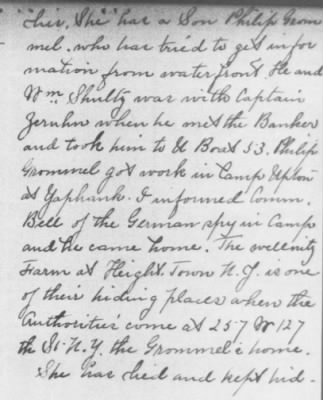 her. She has a Son Philip Grom
mel. who has tried to get infor
mation from waterfront He and
Wm. Shultz was with Captain
when he met the Banker
and took him to U Boat 53. Philip
Grommel got work in Camp Upton
at Yaphank. I informed Comm.
Bell of the German spy in Camp
and he came home. The
Farm at Height Town N.J. is one
of their hiding places when the
Authorities come at 257 W 127
th St. N.Y. the Grommel's home.
She has lied and kept hid-